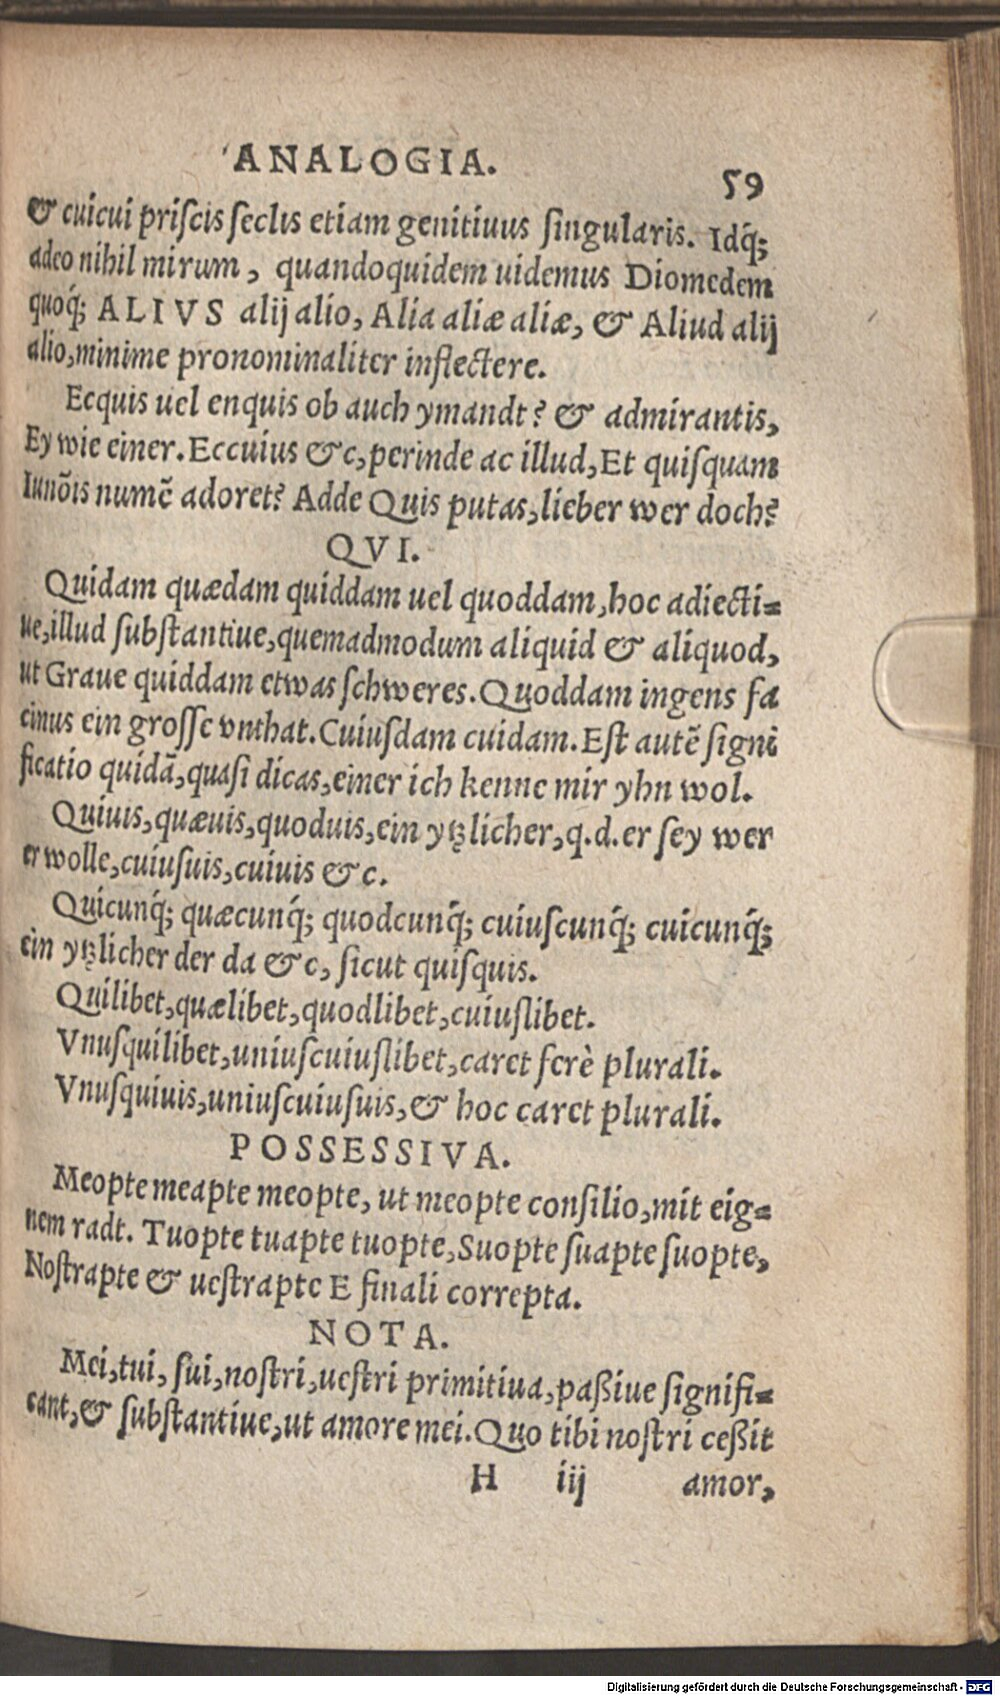 ANALOGIA.
59
& cuicui priſcis ſeclis etiam genitiuus ſingularis. Idq́;
adeo nihil mirum, quandoquidem uidemus Diomedem
quoq́; ALIVS alij alio, Alia aliæ aliæ, & Aliud alij
alio, minime pronominaliter inflectere.
Ecquis uel enquis ob auch ymandt? & admirantis,
Ey wie einer. Eccuius &c, perinde ac illud, Et quiſquam
Iunõis numẽ adoret? Adde Quis putas, lieber wer doch?
QVI.
Quidam quædam quiddam uel quoddam, hoc adiecti=
ue, illud ſubſtantiue, quemadmodum aliquid & aliquod,
ut Graue quiddam etwas ſchweres. Quoddam ingens fa
cinus ein groſſe vnthat. Cuiuſdam cuidam. Eſt autẽ ſigni
ficatio quidã, quaſi dicas, einer ich kenne mir yhn wol.
Quiuis, quæuis, quoduis, ein ytzlicher, q.d. er ſey wer
er wolle, cuiuſuis, cuiuis &c.
Quicunq́; quæcunq́; quodcunq́; cuiuſcunq́; cuicunq́;
ein ytzlicher der da &c, ſicut quiſquis.
Quilibet, quælibet, quodlibet, cuiuſlibet.
Vnuſquilibet, uniuſcuiuſlibet, caret ferè plurali.
Vnuſquiuis, uniuſcuiuſuis, & hoc caret plurali.
POSSESSIVA.
Meopte meapte meopte, ut meopte conſilio, mit eig=
nem radt. Tuopte tuapte tuopte, Suopte ſuapte ſuopte,
Noſtrapte & ueſtrapte E finali correpta.
NOTA.
Mei, tui, ſui, noſtri, ueſtri primitiua, paßiue ſignifi=
cant, & ſubſtantiue, ut amore mei. Quo tibi noſtri ceßit
H iij amor,
Digitalisierung gefördert durch die Deutsche Forschungsgemeinschaft - DFG